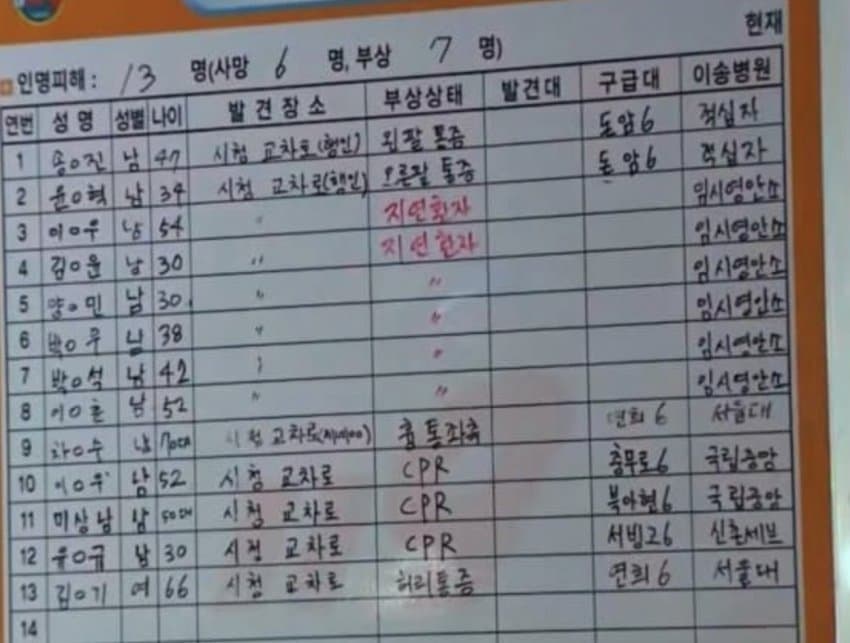 현재
인명피해 : 13 명(사망 6 명, 부상 7 명)
연번 성명 성별 나이 발견장소 부상상태 발견대 구급대 이송병원
1 송O진 남 47 시청 교차로(행인) 왼팔 통증 돈암6 적십자
2 윤O혁 남 34 시청 교차로(행인) 오른팔 통증 돈암6 적십자
3 이O우 남 54 〃 지연환자 임시영안소
4 김O윤 남 30 〃 지연환자 임시영안소
5 양O민 남 30 〃 〃 임시영안소
6 박O우 남 38 〃 〃 임시영안소
7 박O석 남 42 〃 〃 임시영안소
8 이O훈 남 52 〃 〃 임시영안소
9 차O수 남 70대 시청 교차로 흉통좌측 연희6 서울대
10 이O우 남 52 시청 교차로 CPR 충무로6 국립중앙
11 미상남 남 50대 시청 교차로 CPR 북아현6 국립중앙
12 유O규 남 30 시청 교차로 CPR 서빙고6 신촌세브
13 김O기 여 66 시청 교차로 허리통증 연희6 서울대
14